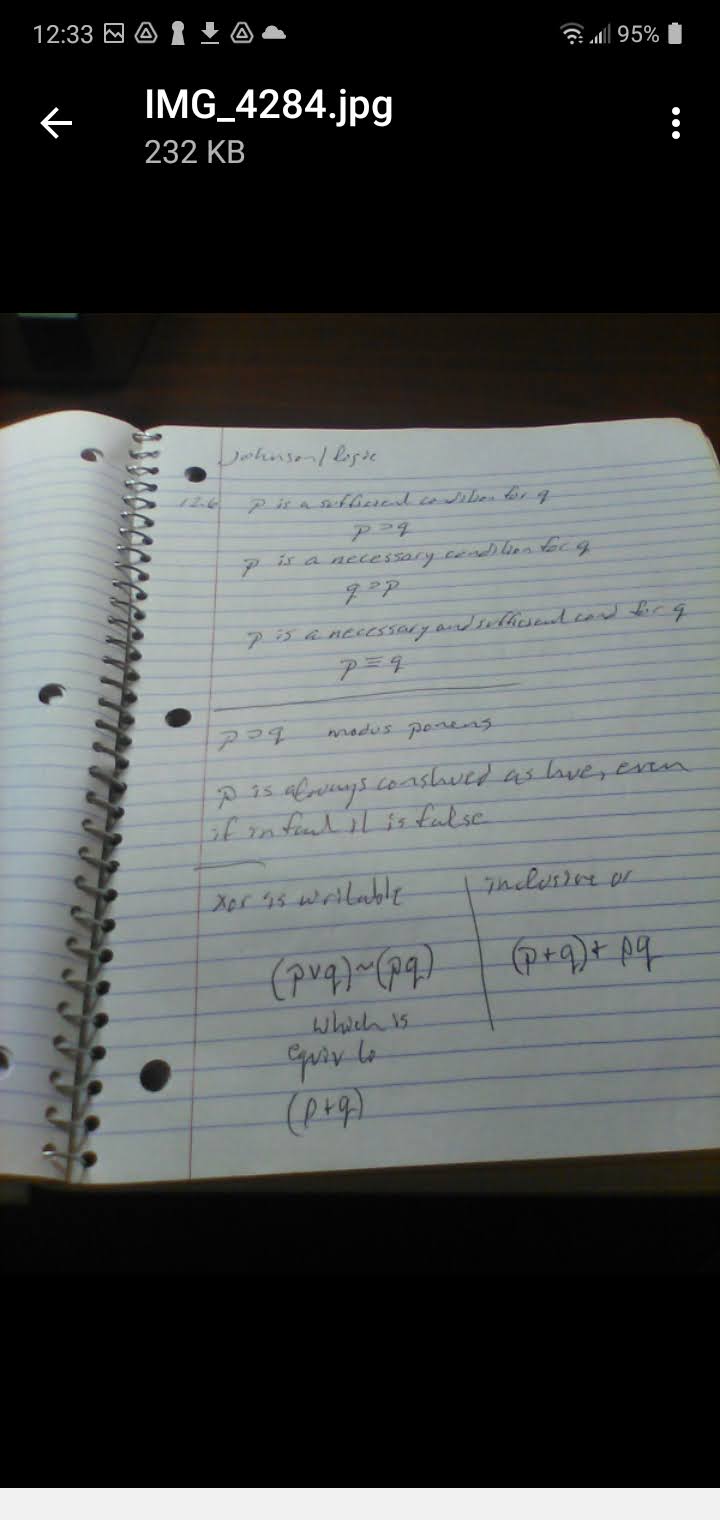 12:33 95%
IMG_4284.jpg
232 KB
Johnson/logic
12.6 p is a sufficient condition for q
p ⊃ q
p is a necessary condition for q
q ⊃ p
p is a necessary and sufficient cond for q
p ≡ q
p ⊃ q modus ponens
p is always construed as true, even
if in fact it is false
xor is writable
inclusive or
(p v q) ~ (pq)
(p+q)+ pq
which is
equiv to
(p+q)